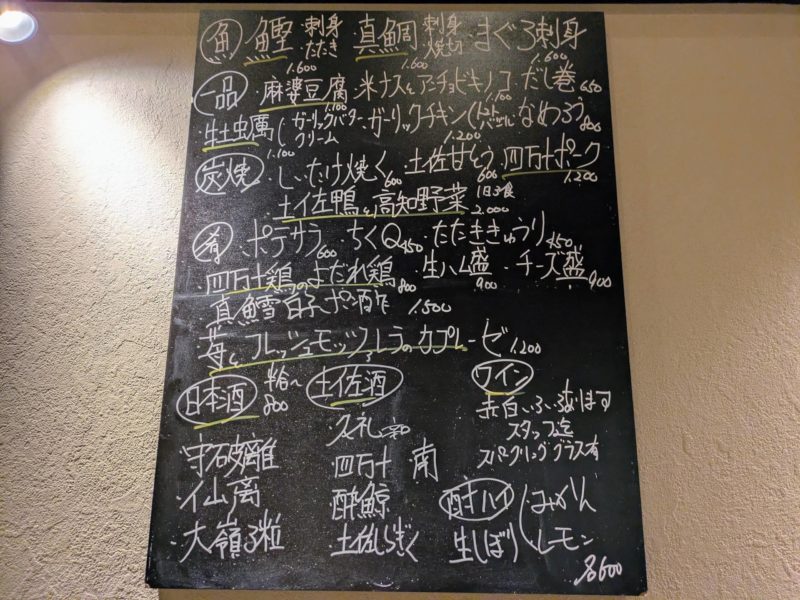 魚 鰹 刺身 たたき 1.600 ・真鯛 刺身 焼切 1.600 まぐろ刺身 1.600
一品 ・麻婆豆腐 1.100 米ナスとアンチョビキノコ 1.100 だし巻 650
・生牡蠣 ガーリックバタークリーム 1.100 ・ガーリックチキン 1.200 なめろう 800
炭焼 しいたけ焼く 600 土佐甘とう 600 四万十ポーク 1.200
土佐鴨と高知野菜 1日3食 2.000
肴 ポテサラ 600 ・ちくQ 450 たたききゅうり 450
・四万十鶏のよだれ鶏 800 ・生ハム盛 900 ・チーズ盛 900
真鱈白子ポン酢 1.500
苺とフレッシュモッツァレラのカプレーゼ 1.200
日本酒 半合〜 800 土佐酒 ワイン
赤白いろいろあります
スタッフ迄
スパークリンググラス有
久礼
・守破離 四万十 南
・仙禽 酔鯨 酎ハイ みかん
・大嶺3粒 土佐しらぎく 生しぼり レモン
各600